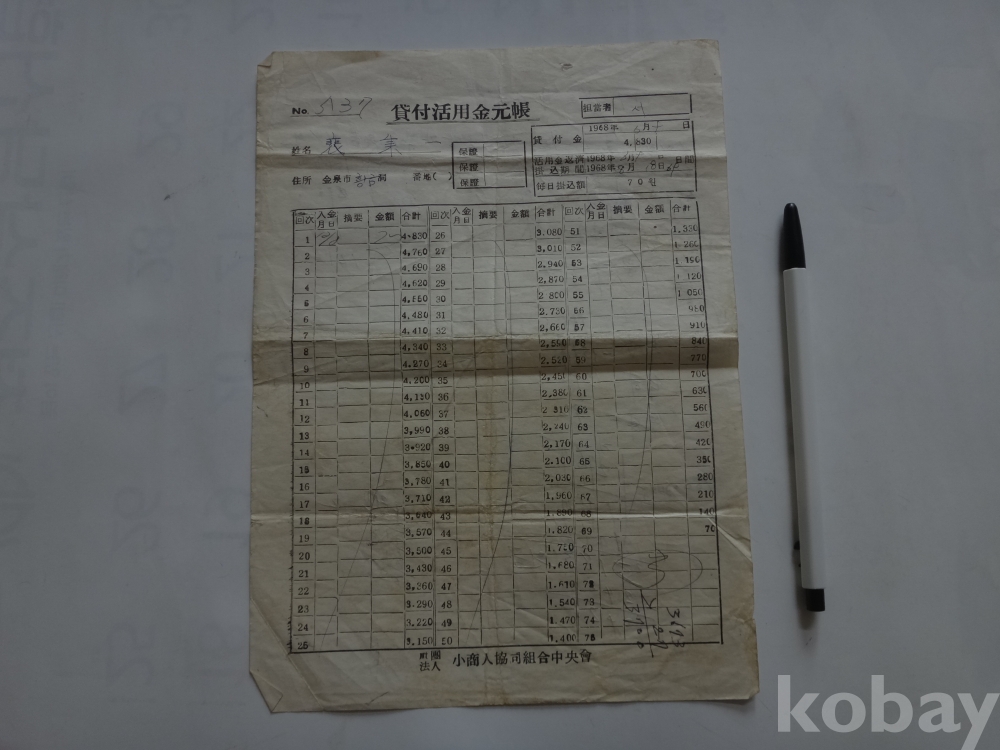 No. 5137
貸付活用金元帳
担當署
姓名 裵 集 一
保證
保證
保證
住所 金泉市 황금洞 番地( )
1968年 月 日
貸付金 4,830
活用金返濟 1968年 月 日間
掛込期間 1968年 月 18日
毎日掛込額 70원
回次 入金月日 摘要 金額 合計 回次 入金月日 摘要 金額 合計 回次 入金月日 摘要 金額 合計
1 4.830 26 3.080 51 1.330
2 4,760 27 3,010 52 1 260
3 4.690 28 2.940 53 1 190
4 4,620 29 2,870 54 1 120
5 4.550 30 2 800 55 1 050
6 4.480 31 2.730 56 980
7 4.410 32 2,660 57 910
8 4,340 33 2,590 58 840
9 4.270 34 2.520 59 770
10 4.200 35 2,450 60 700
11 4,130 36 2.380 61 630
12 4.060 37 2 310 62 560
13 3,990 38 2,240 63 490
14 3.920 39 2,170 64 420
15 3.850 40 2.100 65 350
16 3.780 41 2,030 66 280
17 3,710 42 1,960 67 210
18 3,640 43 1.890 68 140
19 3,570 44 1.820 69 70
20 3,500 45 1.750 70
21 3,430 46 1.680 71
22 3,360 47 1.610 72
23 3.290 48 1.540 73
24 3.220 49 1.470 74
25 3.150 50 1.400 75
3693
3900
財團法人 小商人協同組合中央會
kobay